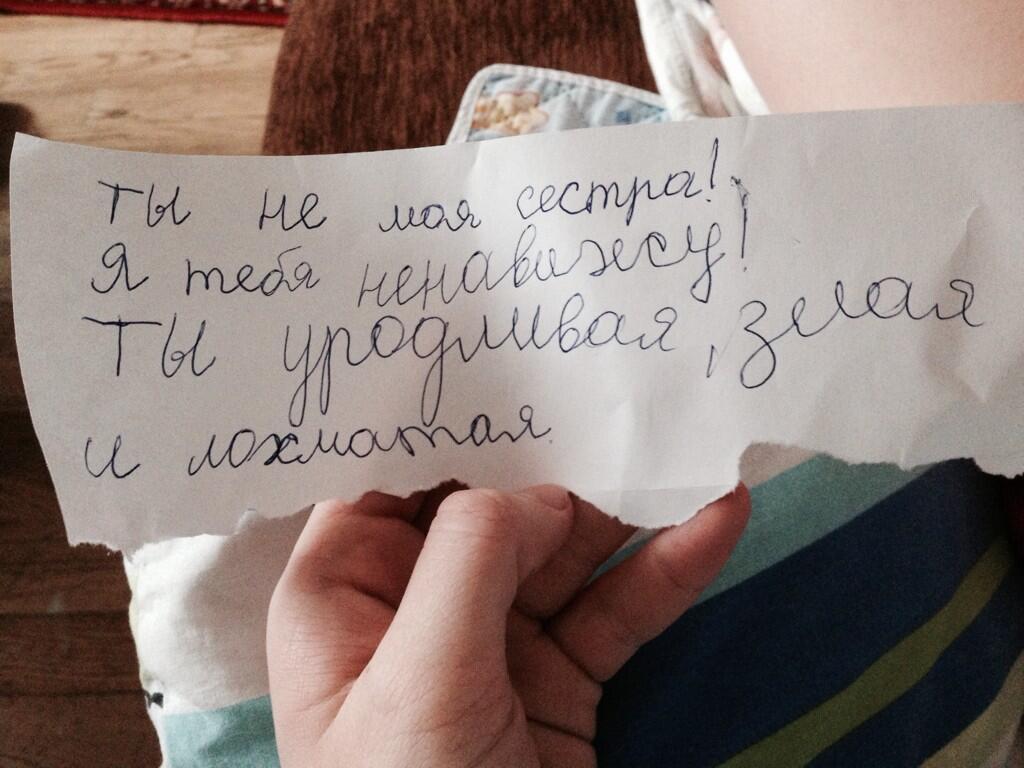 Ты не моя сестра!
Я тебя ненавижу!
Ты уродливая, злая
и лохматая.